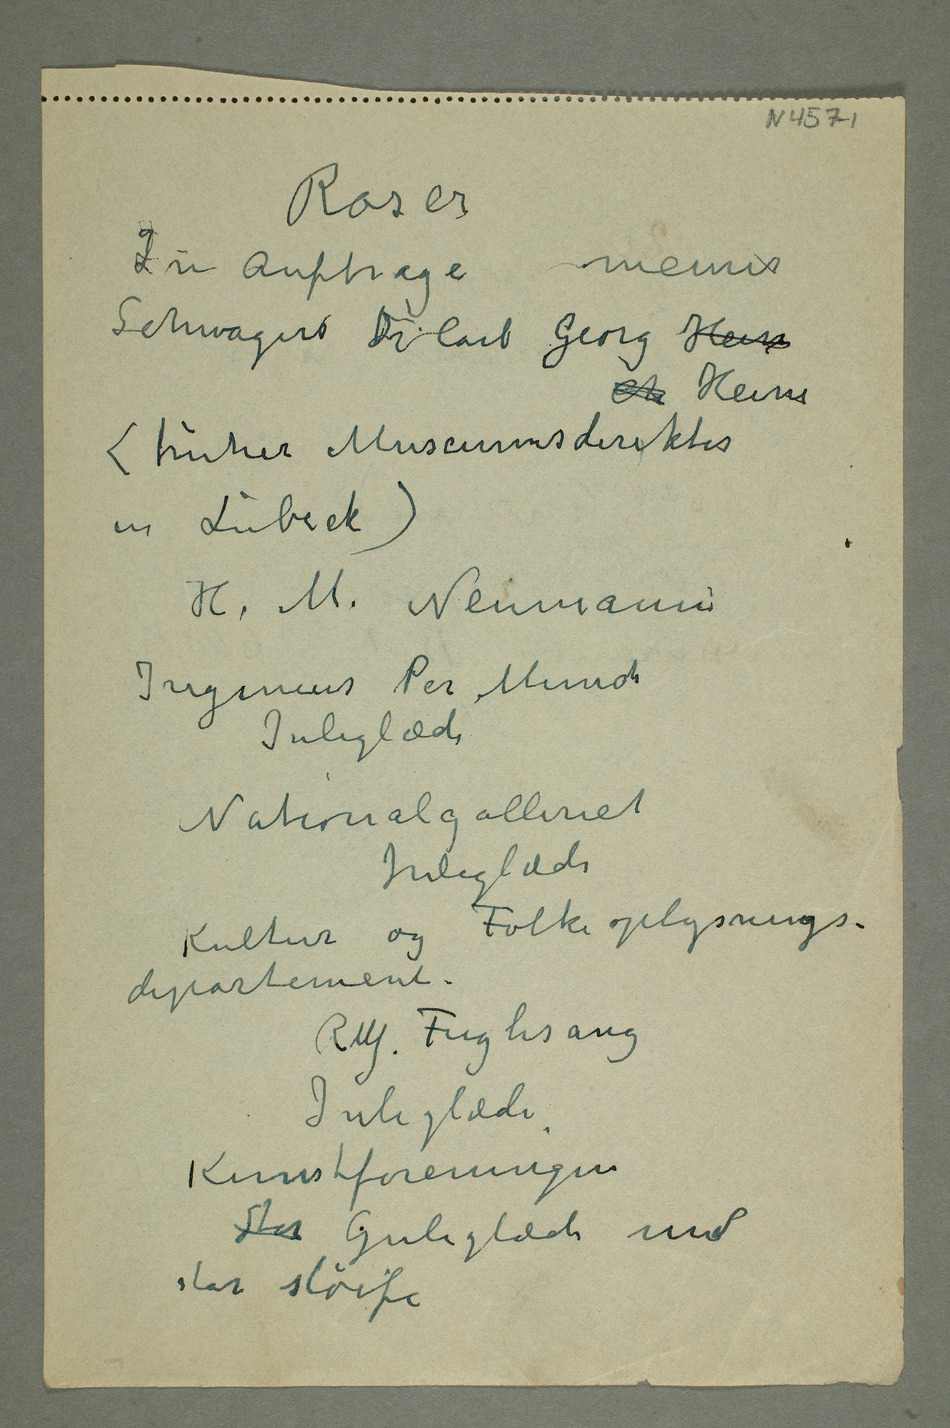 N 457-1
Roser
Im Auftrage meines
Schwagers Dr Carl Georg Heise
Heise
(früher Museumsdirektor
in Lübeck)
H. M. Neumann
Ingeniør Per Munch
Juleglæde
Nationalgalleriet
Juleglæde
Kultur og Folkeoplysnings-
departement.
Rolf. Fuglesang
Juleglæde
Kunstforeningen
Stor Juleglæde med
stor sløife